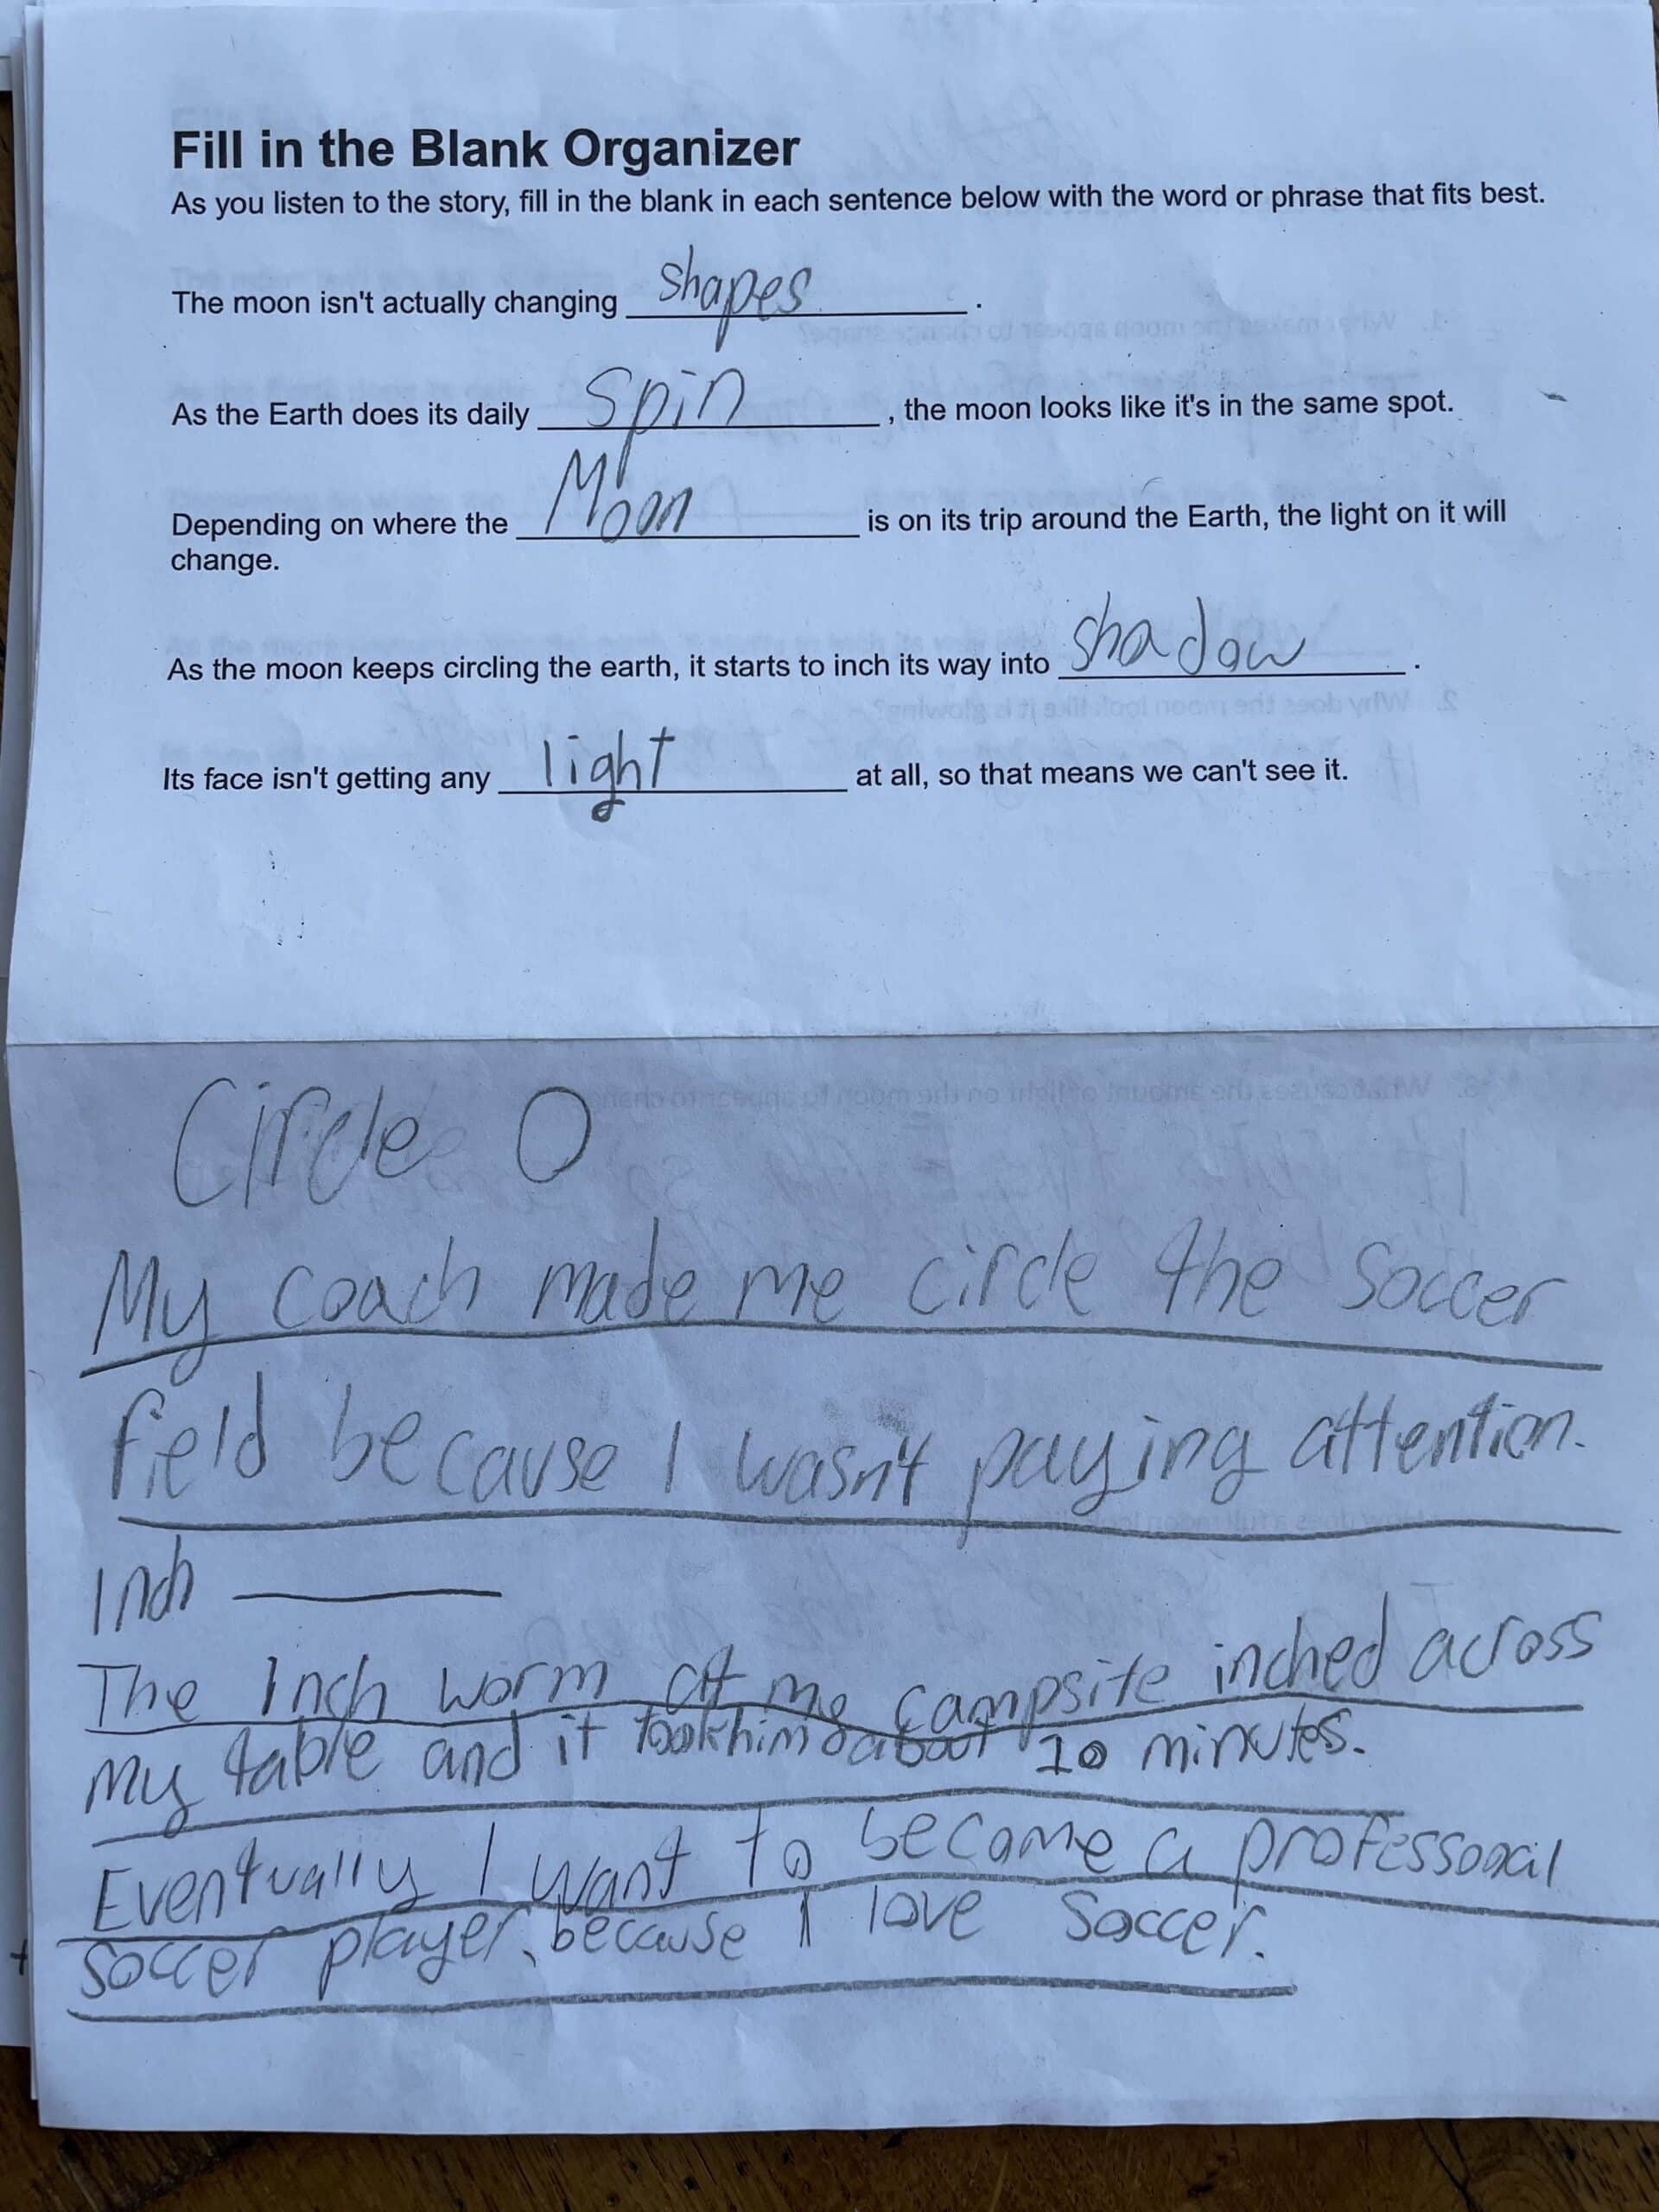 Fill in the Blank Organizer
As you listen to the story, fill in the blank in each sentence below with the word or phrase that fits best.
The moon isn't actually changing shapes.
As the Earth does its daily spin, the moon looks like it's in the same spot.
Depending on where the Moon is on its trip around the Earth, the light on it will
change.
As the moon keeps circling the earth, it starts to inch its way into shadow.
Its face isn't getting any light at all, so that means we can't see it.
Circle O
My coach made me circle the soccer
field because I wasn't paying attention.
Inch
The Inch worm at my campsite inched across
my table and it took him about 10 minutes.
Eventually I want to become a professonail
soccer player, because I love Soccer.